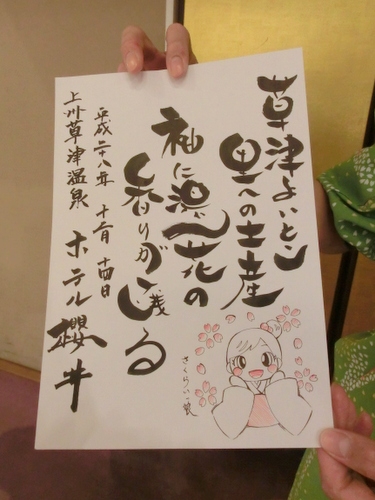 草津よいとこ
里への土産
袖に湯花の
香りが残る
平成二十八年 十二月 十四日
上州草津温泉 ホテル櫻井